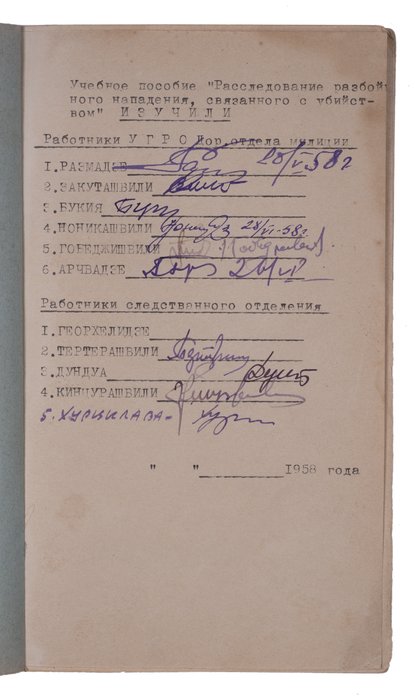 Учебное пособие "Расследование разбой
ного нападения, связанного с убийст-
вом" И З У Ч И Л И
Работники У Г Р О Дор.отдела милиции
1.РАЗМАДЗЕ 28/V-58г
2.ЗАКУТАШВИЛИ
3.БУКИЯ
4.НОНИКАШВИЛИ 28/VI-58г.
5.ГОБЕДЖИШВИЛИ
6.АРЧВАДЗЕ 26/VI
Работники следственного отделения
1.ГЕОРХЕЛИДЗЕ
2.ТЕРТЕРАШВИЛИ
3.ДУНДУА
4.КИНЦУРАШВИЛИ
5.ХУРЦИЛАВА-
" " 1958 года